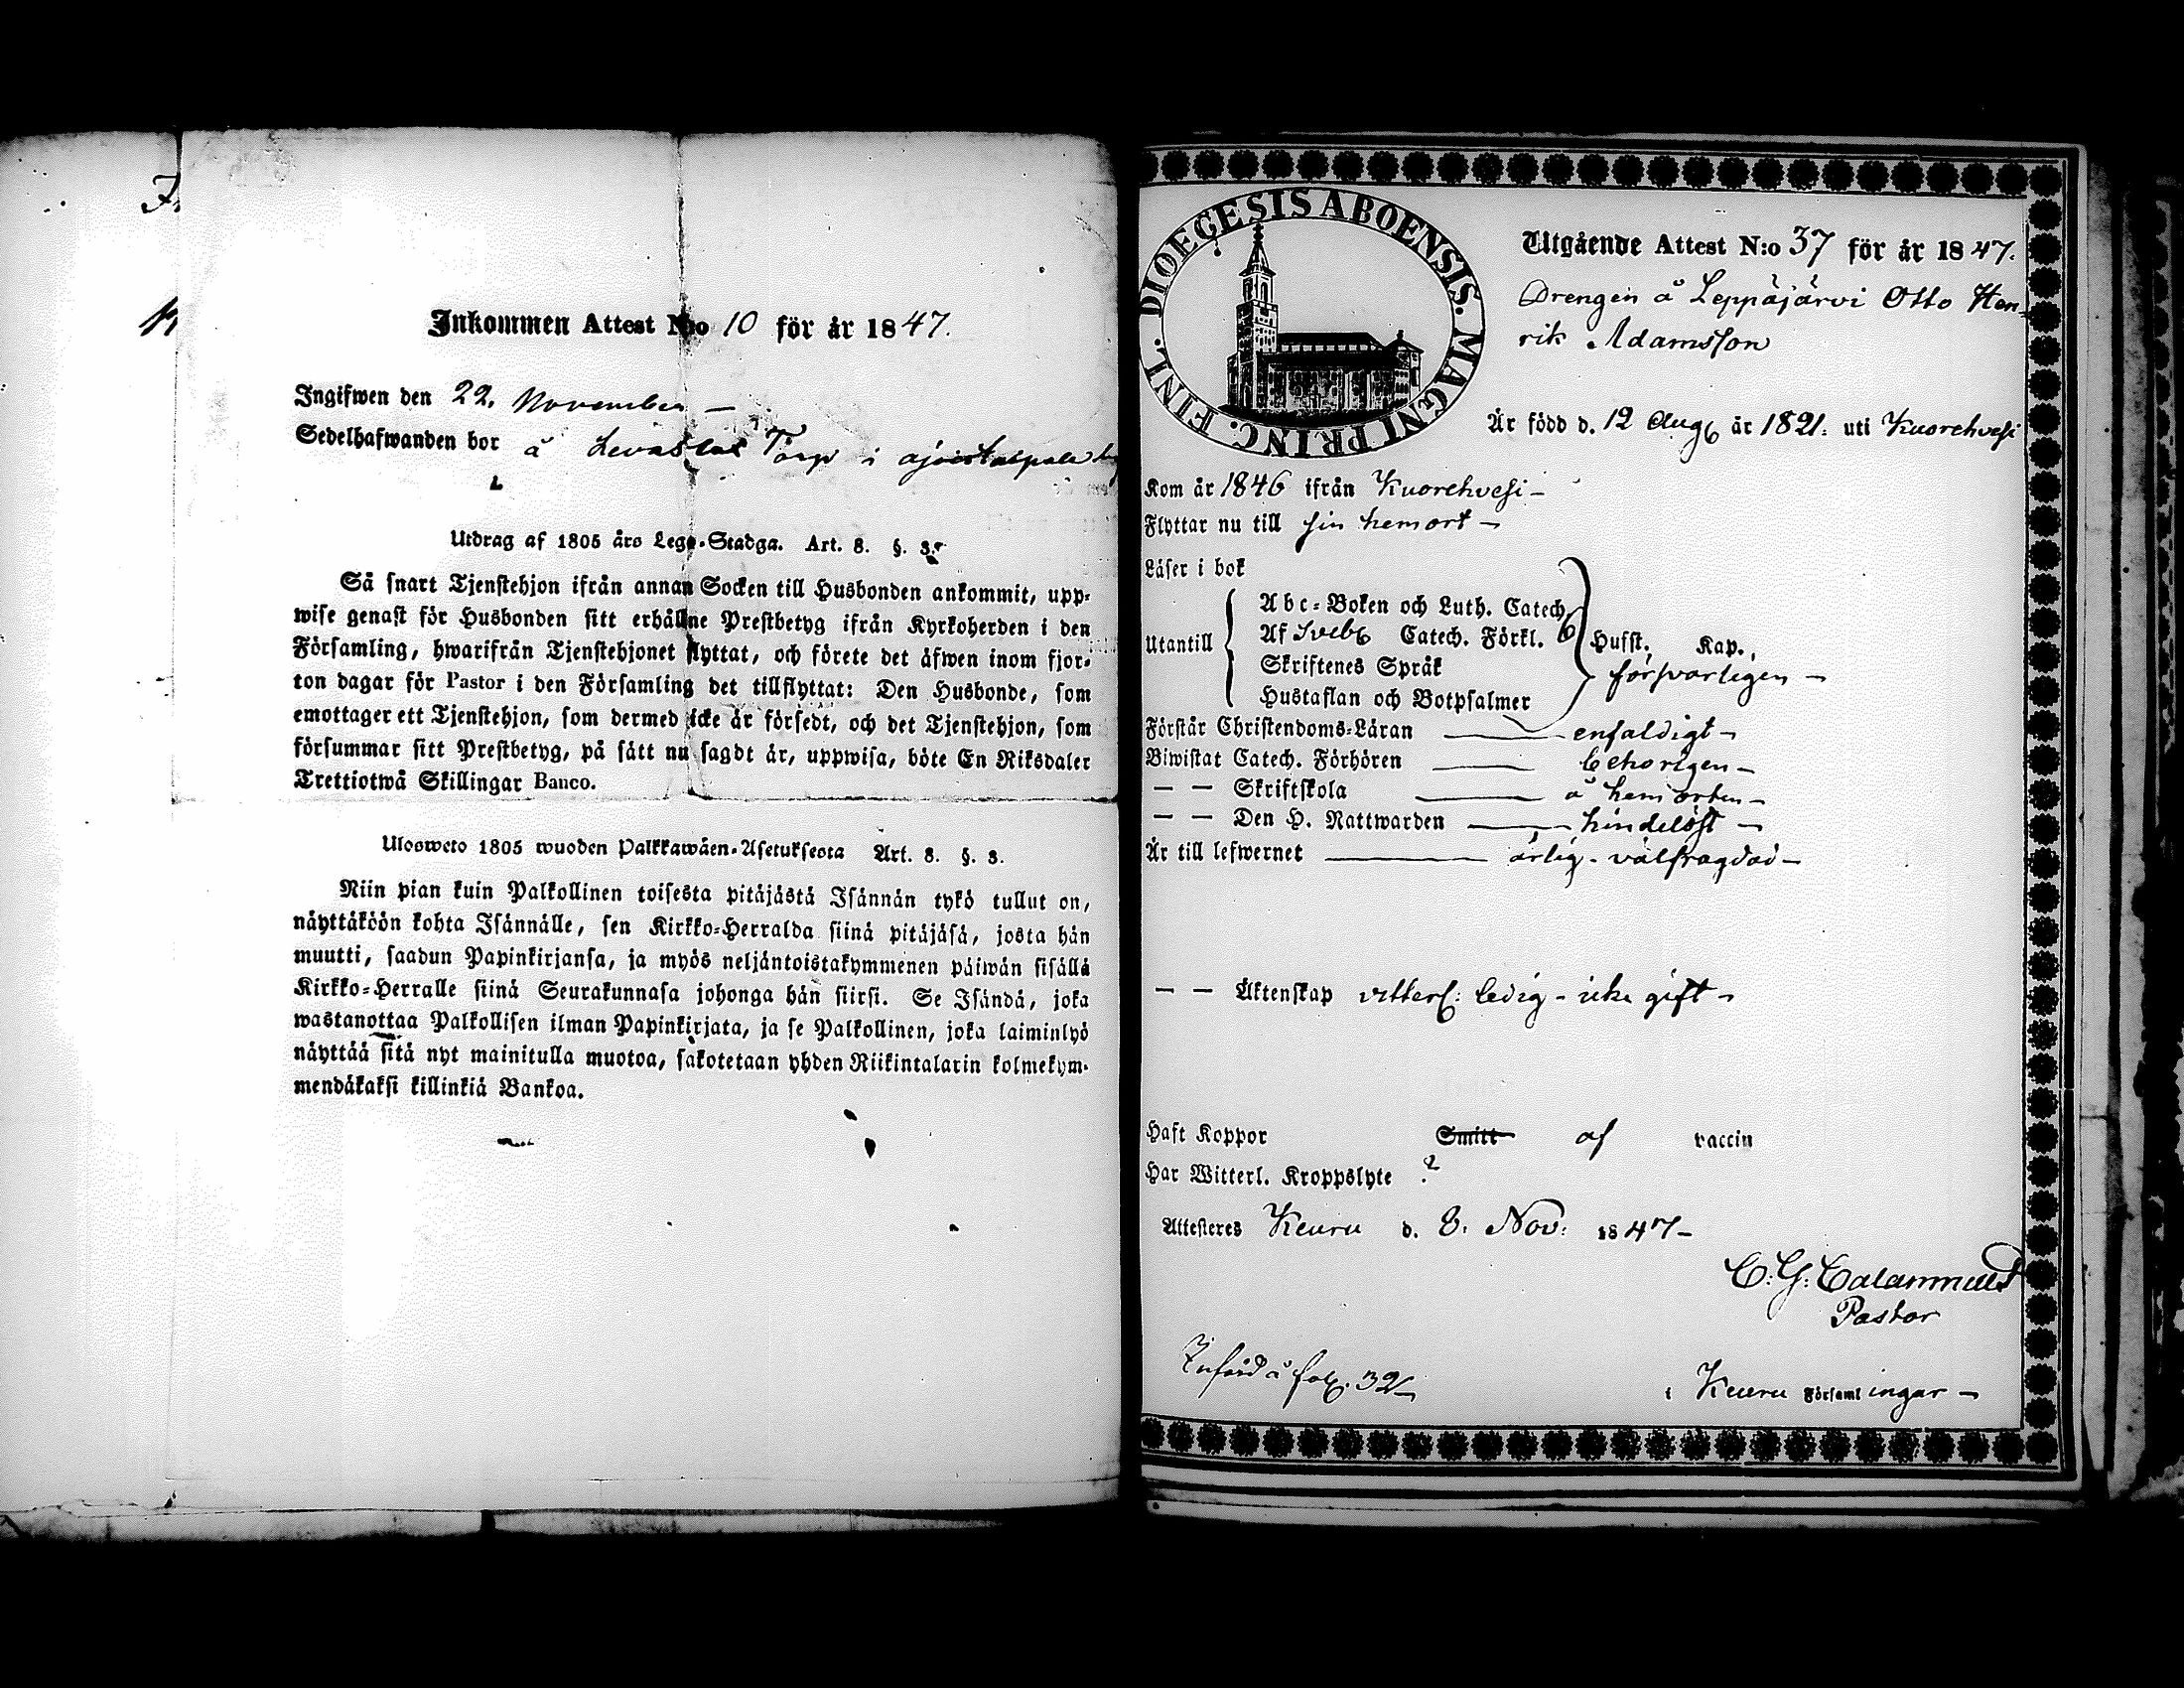 Inkommen Attest N:o 10 för år 1847.
Ingifwen den 22. November –
Sedelhafwanden bor å Torp i
Utdrag af 1805 års Lego-Stadga. Art. 8. §. 3.
Så snart Tjenstehjon ifrån annan Socken till Husbonden ankommit, upp-
wise genast för Husbonden sitt erhållne Prestbetyg ifrån Kyrkoherden i den
Församling, hwarifrån Tjenstehjonet flyttat, och förete det äfwen inom fjor-
ton dagar för Pastor i den Församling det tillflyttat: Den Husbonde, som
emottager ett Tjenstehjon, som dermed icke är försedt, och det Tjenstehjon, som
försummar sitt Prestbetyg, på sätt nu sagdt är, uppwisa, böte En Riksdaler
Trettiotwå Skillingar Banco.
Ulosweto 1805 wuoden Palkkawäen-Asetuksesta Art. 8. §. 3.
Niin pian kuin Palkollinen toisesta pitäjästä Isännän tykö tullut on,
näyttäköön kohta Isännälle, sen Kirkko-Herralda siinä pitäjäsä, josta hän
muutti, saadun Papinkirjansa, ja myös neljäntoistakymmenen päiwän sisällä
Kirkko-Herralle siinä Seurakunnasa johonga hän siirsi. Se Isändä, joka
wastanottaa Palkollisen ilman Papinkirjata, ja se Palkollinen, joka laiminlyö
näyttää sitä nyt mainitulla muotoa, sakotetaan yhden Riikintalarin kolmekym-
mendäkaksi killinkiä Bankoa.
DIOECESIS ABOENSIS. MAGNI PRINC. FINL.
Utgående Attest N:o 37 för år 1847.
Drengen å Leppäjärvi Otto Hen-
rik Adamsson
Är född d. 12 Aug är 1821. uti Kuorehvesi
Kom år 1846 ifrån Kuorehvesi –
Flyttar nu till sin hemort –
Läser i bok
Abc-Boken och Luth. Catech.
Utantill Af Sveb Catech. Förkl. Husst. Kap.
Skriftenes Språk försvarligen –
Hustaflan och Botpsalmer
Förstår Christendoms-Läran enfaldigt –
Biwistat Catech. Förhören behörigen –
— — Skriftskola å hemorten –
— — Den H. Nattwarden hindelöst –
Är till lefwernet ärlig – välfrägdad –
— — Äktenskap vitterl: ledig – icke gift –
Haft Koppor Smitt af vaccin
Har Witterl. Kroppslyte ?
Attesteres Keuru d. 8. Nov: 1847 –
C. G. Calamnius
Pastor
Införd å fol. 32
i Keuru Församlingar –